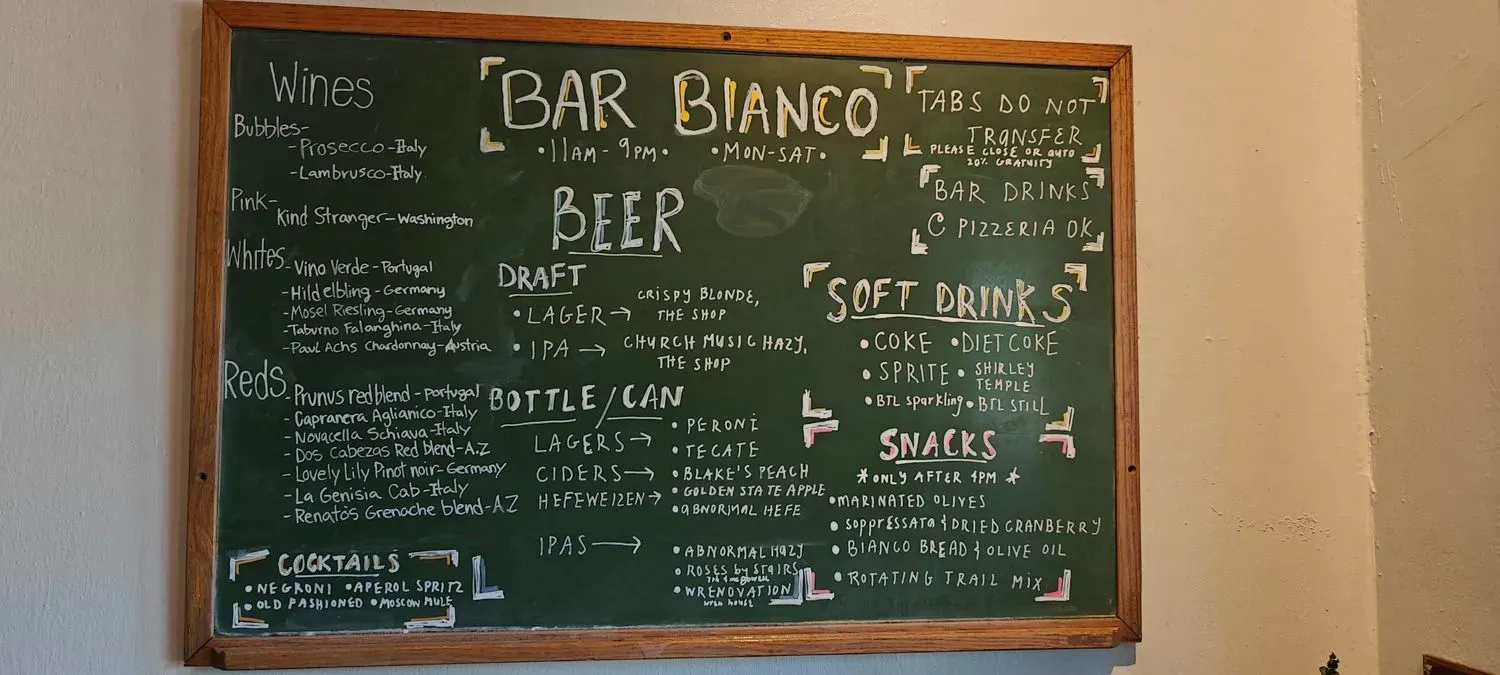 Wines
Bubbles-
- Prosecco - Italy
- Lambrusco - Italy
Pink-
Kind Stranger - Washington
Whites
- Vino Verde - Portugal
- Hild elbling - Germany
- Mosel Riesling - Germany
- Taburno Falanghina - Italy
- Paul Achs Chardonnay - Austria
Reds
- Prunus red blend - Portugal
- Capranera Aglianico - Italy
- Novacella Schiava - Italy
- Dos Cabezas Red blend - A.Z
- Lovely Lily Pinot noir - Germany
- La Genisia Cab - Italy
- Renato's Grenache blend - A.Z
COCKTAILS
• NEGRONI • APEROL SPRITZ
• OLD FASHIONED • MOSCOW MULE
BAR BIANCO
• 11AM - 9PM • • MON - SAT •
BEER
DRAFT
• LAGER → CRISPY BLONDE,
THE SHOP
• IPA → CHURCH MUSIC HAZY,
THE SHOP
BOTTLE / CAN
LAGERS → • PERONI
• TECATE
CIDERS → • BLAKE'S PEACH
• GOLDEN STATE APPLE
HEFEWEIZEN → • ABNORMAL HEFE
IPAS → • ABNORMAL HAZY
• ROSES by STAIRS
• WRENOVATION
wren house
TABS DO NOT
TRANSFER
PLEASE CLOSE OR AUTO
20% GRATUITY
BAR DRINKS
C PIZZERIA OK
SOFT DRINKS
• COKE • DIET COKE
• SPRITE • SHIRLEY
TEMPLE
• BTL sparkling • BTL STILL
SNACKS
* ONLY AFTER 4PM *
• MARINATED OLIVES
• SOPPRESSATA & DRIED CRANBERRY
• BIANCO BREAD & OLIVE OIL
• ROTATING TRAIL MIX